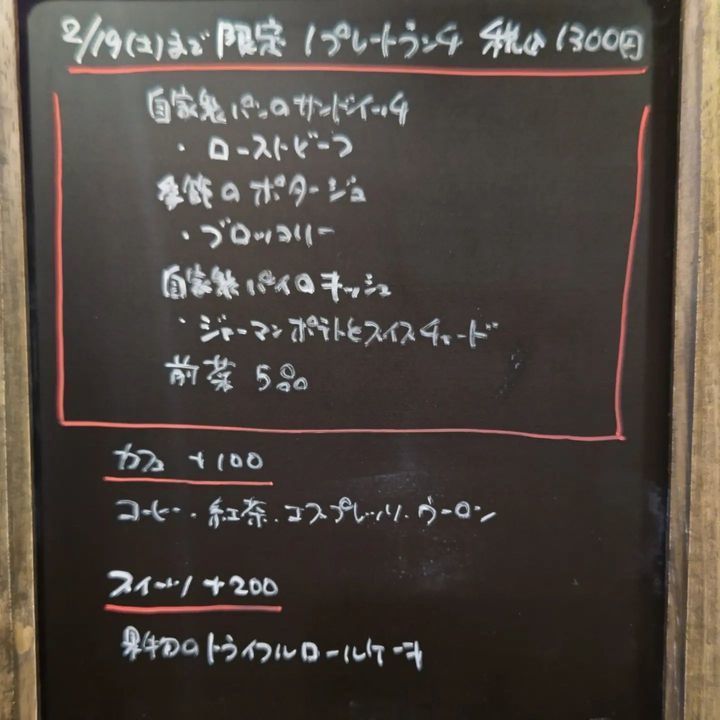 2/19(土)まで 限定 1プレートランチ 税込1300円
自家製パンのサンドイッチ
・ローストビーフ
季節のポタージュ
・ブロッコリー
自家製パイのキッシュ
・ジャーマンポテトとスイスチャード
前菜 5品
カフェ +100
コーヒー・紅茶・エスプレッソ・ウーロン
スイーツ +200
果物のトライフルロールケーキ